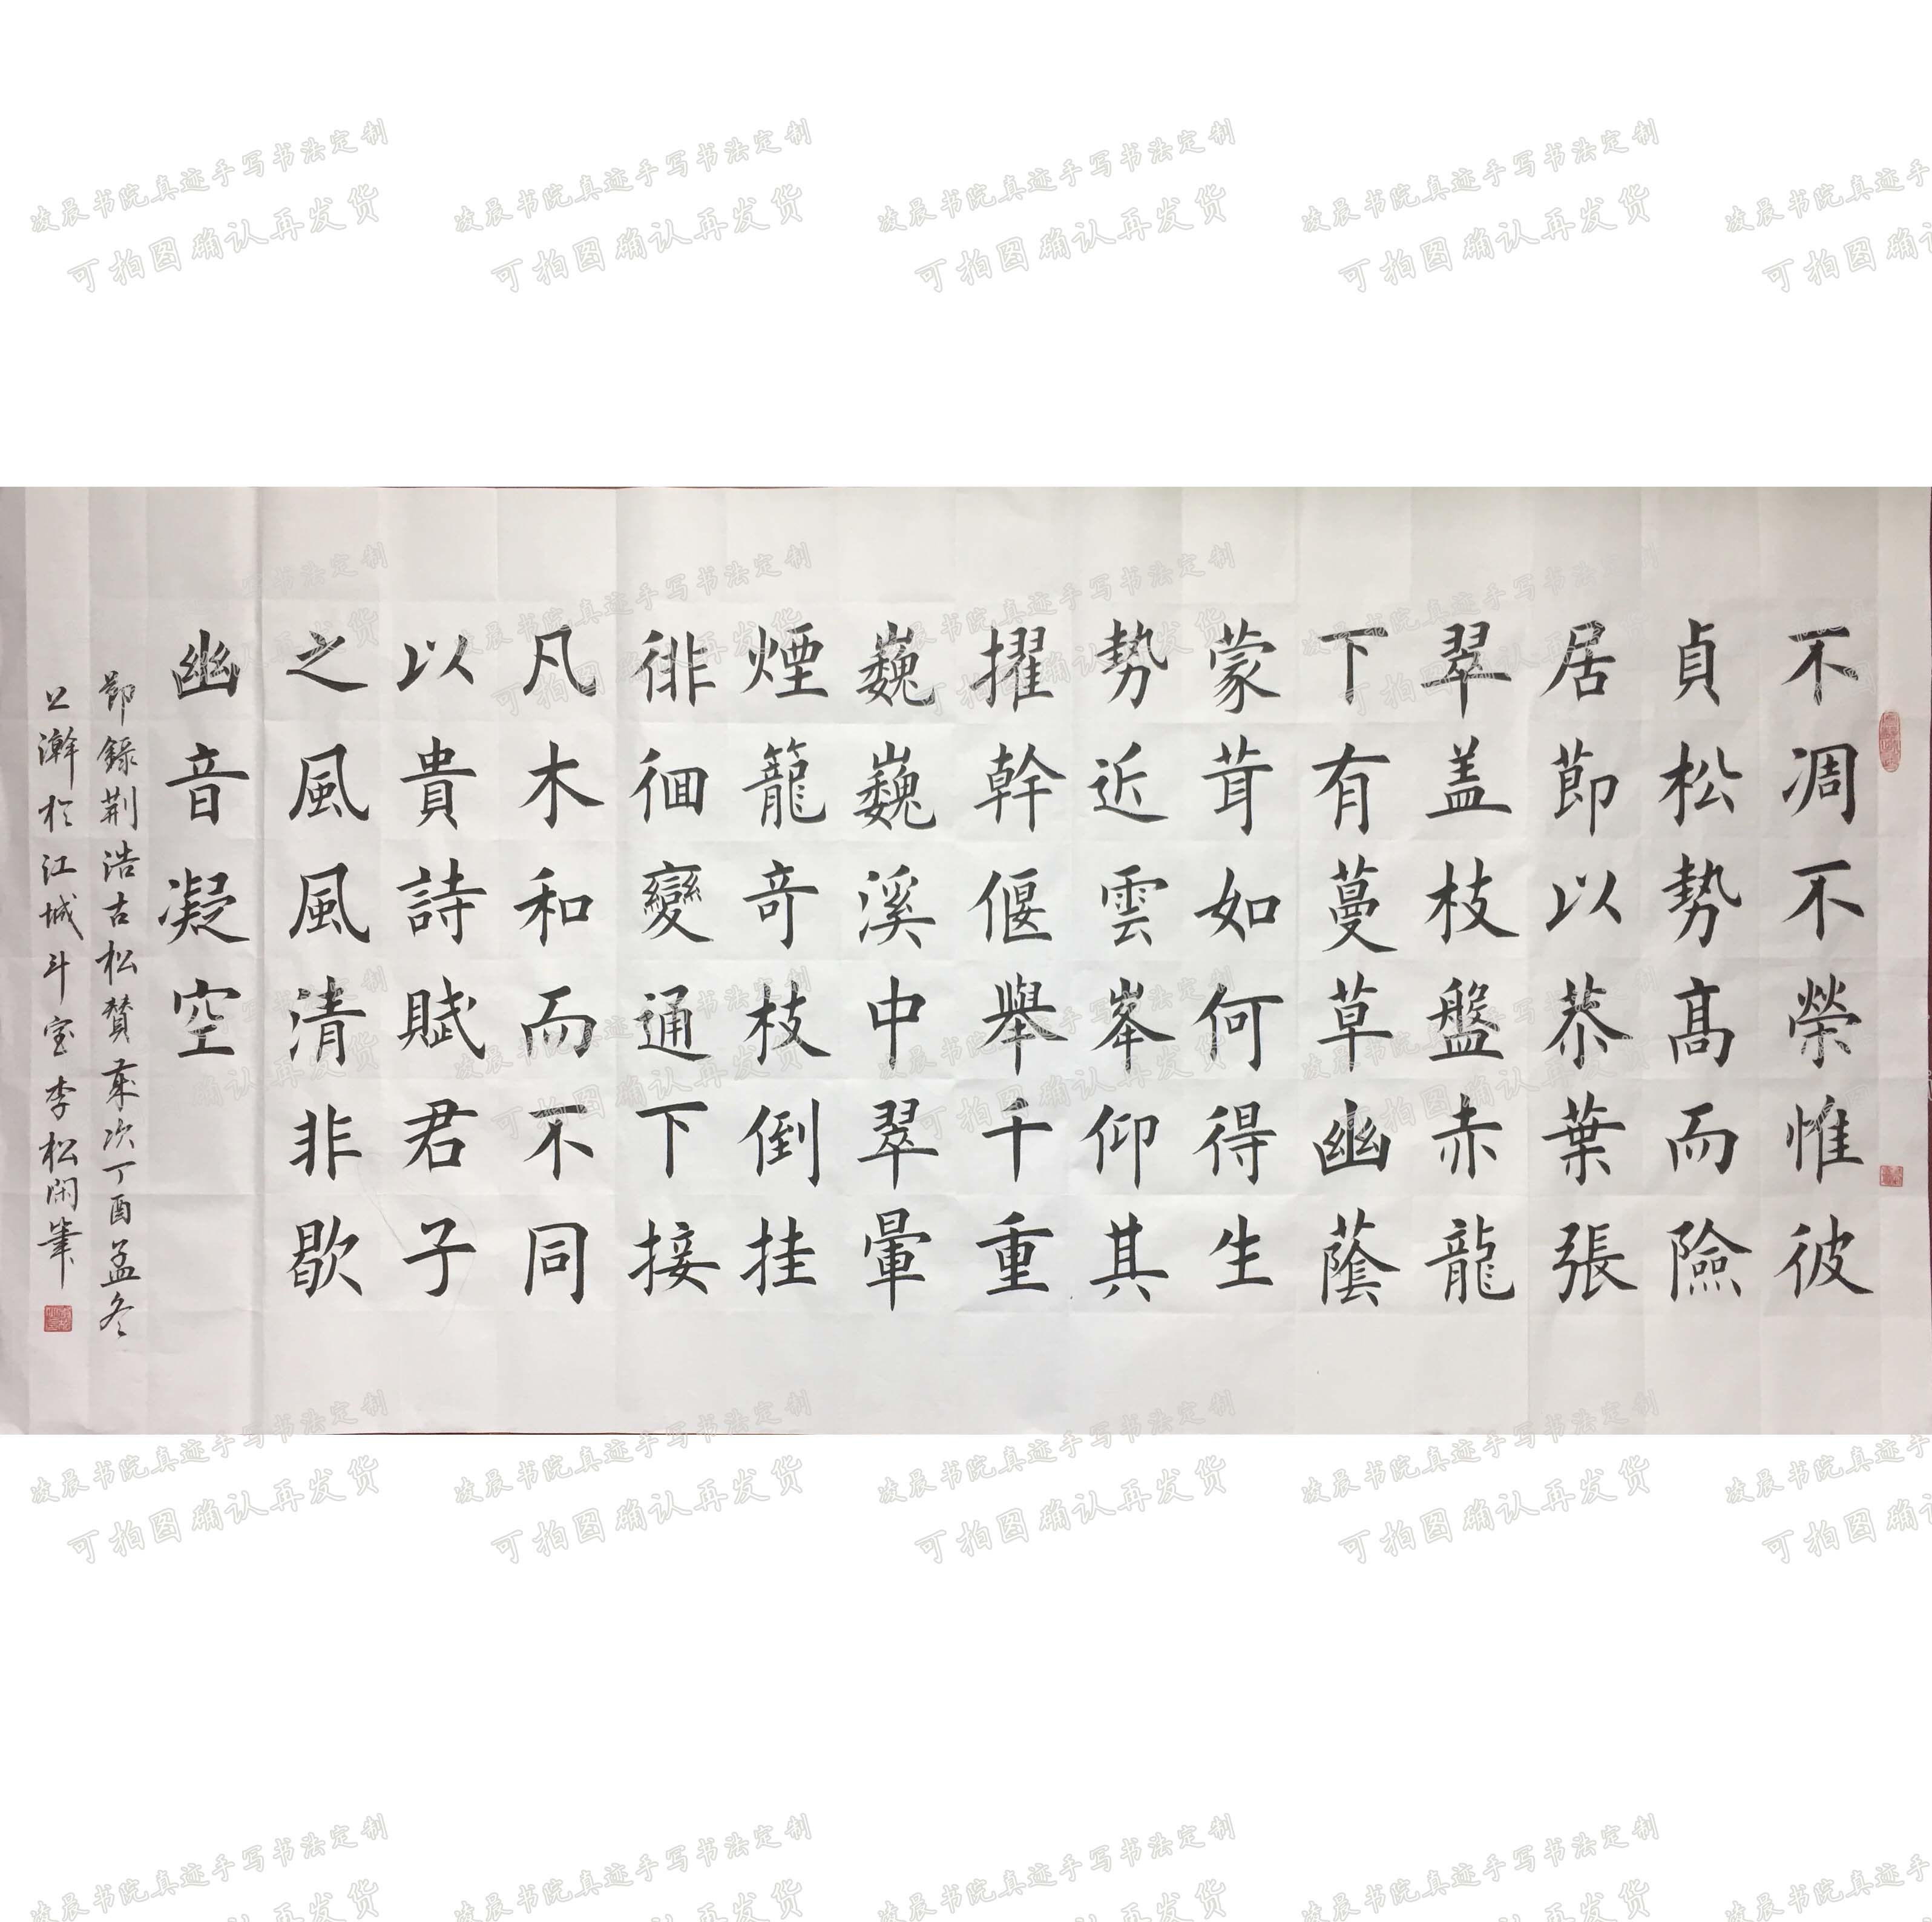 不凋不榮惟彼
貞松勢高而險
居節以恭葉張
翠盖枝盤赤龍
下有蔓草幽蔭
蒙茸如何得生
勢近雲峯仰其
擢幹偃舉千重
巍巍溪中翠暈
煙籠奇枝倒挂
徘徊變通下接
凡木和而不同
以貴詩賦君子
之風風清非歇
幽音凝空
節錄荆浩古松赞歲次丁酉孟冬
公瀚於江城斗室李松閑筆
凌晨书院真迹手写书法定制
可拍图确认再发货